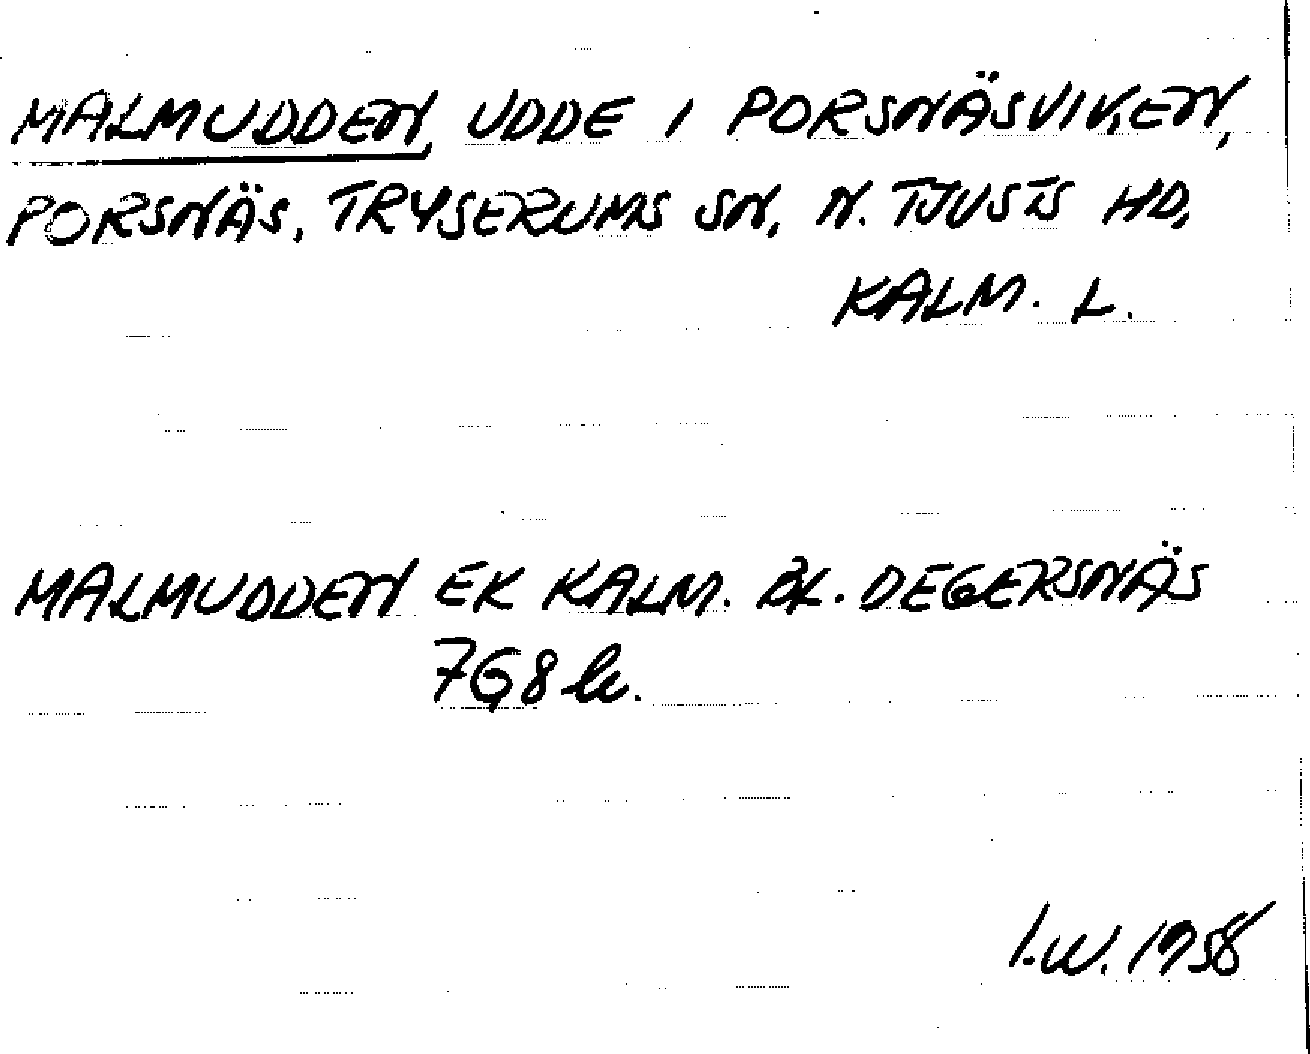 MALMUDDEN, UDDE I PORSNÄSVIKEN,
PORSNÄS, TRYSERUMS SN, N. TJUSTS HD,
KALM. L.
MALMUDDEN EK KALM. BL. DEGERSNÄS
7G8
I.W. 1958